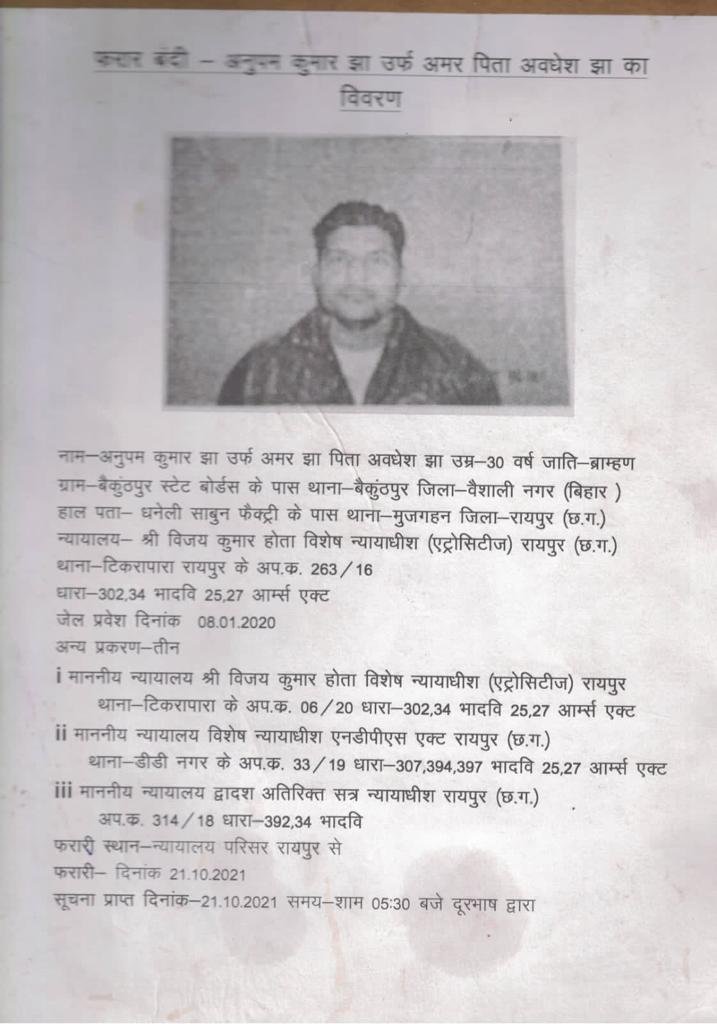 फरार बंदी – अनुपम कुमार झा उर्फ अमर पिता अवधेश झा का
विवरण
नाम–अनुपम कुमार झा उर्फ अमर झा पिता अवधेश झा उम्र–30 वर्ष जाति–ब्राम्हण
ग्राम–बैकुंठपुर स्टेट बोर्डस के पास थाना–बैकुंठपुर जिला–वैशाली नगर (बिहार )
हाल पता– धनेली साबुन फैक्ट्री के पास थाना–मुजगहन जिला–रायपुर (छ.ग.)
न्यायालय– श्री विजय कुमार होता विशेष न्यायाधीश (एट्रोसिटीज) रायपुर (छ.ग.)
थाना–टिकरापारा रायपुर के अप.क. 263/16
धारा–302,34 भादवि 25,27 आर्म्स एक्ट
जेल प्रवेश दिनांक 08.01.2020
अन्य प्रकरण–तीन
i माननीय न्यायालय श्री विजय कुमार होता विशेष न्यायाधीश (एट्रोसिटीज) रायपुर
थाना–टिकरापारा के अप.क. 06/20 धारा–302,34 भादवि 25,27 आर्म्स एक्ट
ii माननीय न्यायालय विशेष न्यायाधीश एनडीपीएस एक्ट रायपुर (छ.ग.)
थाना–डीडी नगर के अप.क. 33/19 धारा–307,394,397 भादवि 25,27 आर्म्स एक्ट
iii माननीय न्यायालय द्वादश अतिरिक्त सत्र न्यायाधीश रायपुर (छ.ग.)
अप.क. 314/18 धारा–392,34 भादवि
फरारी स्थान–न्यायालय परिसर रायपुर से
फरारी– दिनांक 21.10.2021
सूचना प्राप्त दिनांक–21.10.2021 समय–शाम 05:30 बजे दूरभाष द्वारा